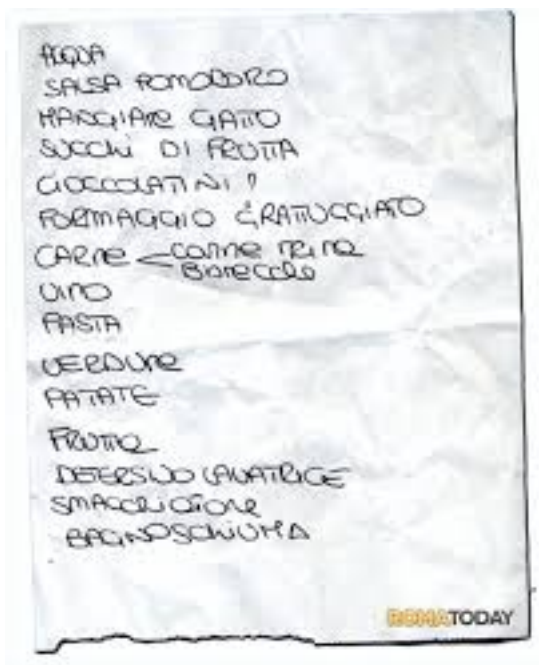 ACQUA
SALSA POMODORO
MANGIARE GATTO
SUCCHI DI FRUTTA
CIOCCOLATINI ?
FORMAGGIO GRATTUGGIATO
CARNE < carne trita
Bistecche
VINO
PASTA
VERDURE
PATATE
FRUTTA
DETERSIVO LAVATRICE
SMACCHIATORE
BAGNOSCHIUMA
ROMATODAY